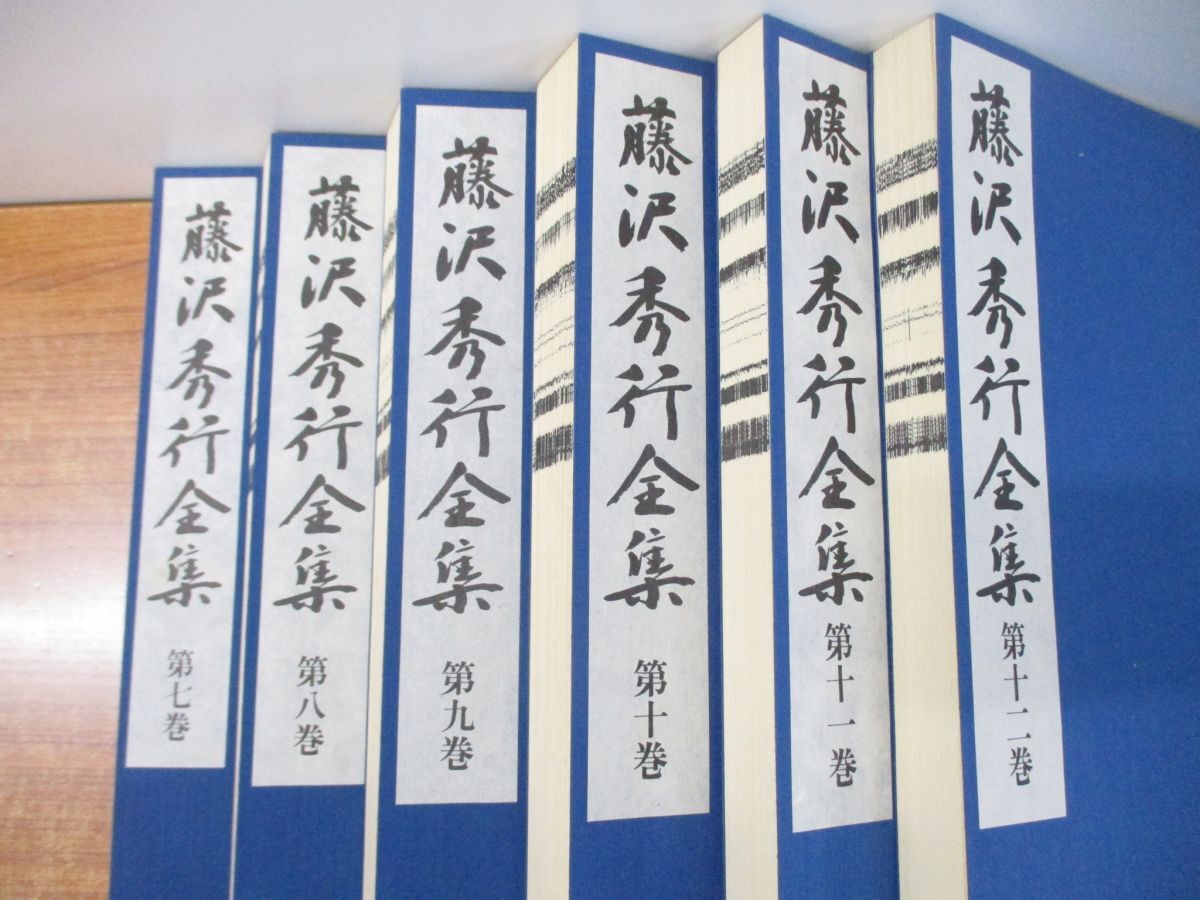 藤沢秀行全集
第七巻
藤沢秀行全集
第八巻
藤沢秀行全集
第九巻
藤沢秀行全集
第十巻
藤沢秀行全集
第十一巻
藤沢秀行全集
第十二巻